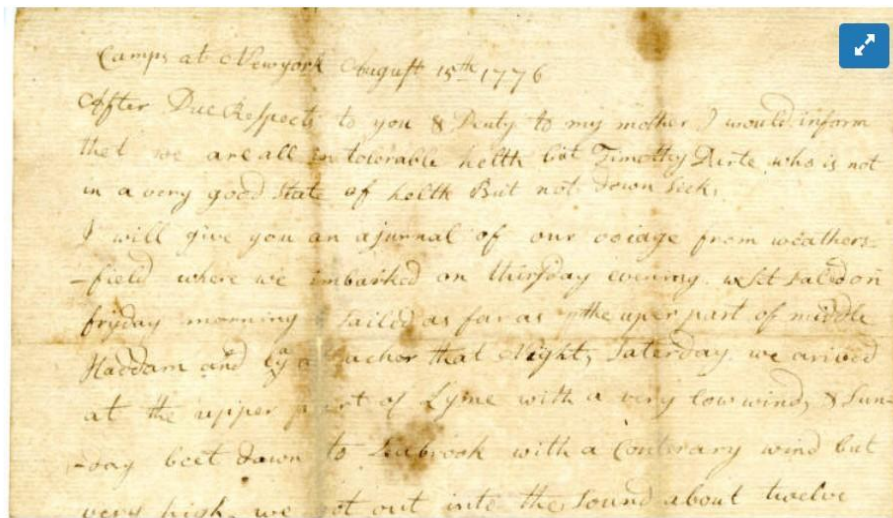 Camps at Newyork August 15th 1776
After Due Respects to you & Deuty to my mother I would inform
thet we are all in tolerable helth but Timothy who is not
in a very good State of helth But not down Seek,
I will give you an ajurnal of our voiage from weathers-
-field where we imbarked on thirsday evening. we Set sal on
fryday morning Sailed as far as the uper part of middle
Haddam and lay a that Night, Saterday we arived
at the upper part of Lyme with a very low wind, & Sun-
-day beet down to Seabrook with a Conterary wind but
very high. we got out into the Sound about twelve